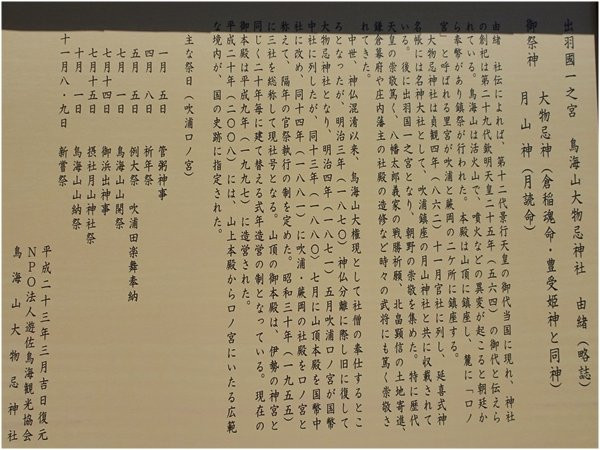 出羽國一之宮　鳥海山大物忌神社　由緒（略誌）
御祭神　大物忌神（倉稲魂命・豊受姫神と同神）
月山神（月読命）
由緒　社伝によれば、第十二代景行天皇の御代当国に現れ、神社
の創祀は第二十九代欽明天皇二十五年（五六四）の御代と伝えら
れている。鳥海山は活火山で、噴火などの異変が起こると朝廷か
ら奉幣があり鎮祭が行われた。本殿は山頂に鎮座し、麓に「口ノ
宮」と呼ばれる里宮が吹浦と蕨岡の二ケ所に鎮座する。
大物忌神社は貞観四年（八六二）十一月官社に列し、延喜式神
名帳には名神大社として、吹浦鎮座の月山神社と共に収載されて
いる。後に出羽国一之宮となり、朝野の崇敬を集めた。特に歴代
天皇の崇敬篤く、八幡太郎義家の戦勝祈願、北畠顕信の土地寄進、
鎌倉幕府や庄内藩主の社殿の造修など時々の武将にも篤く崇敬さ
れてきた。
中世、神仏混淆以来、鳥海山大権現として社僧の奉仕するとこ
ろとなったが、明治三年（一八七〇）神仏分離に際し旧に復して
大物忌神社となり、明治四年（一八七一）五月吹浦口ノ宮が国幣
中社に列したが、同十三年（一八八〇）七月に山頂本殿を国幣中
社に改め、同十四年（一八八一）に吹浦・蕨岡の社殿を口ノ宮と
称えて、隔年の官祭執行の制を定めた。昭和三十年（一九五五）
に三社を総称して現社号となる。山頂の御本殿は、伊勢の神宮と
同じく二十年毎に建て替える式年造営の制となっている。現在の
御本殿は平成九年（一九九七）に造営された。
平成二十年（二〇〇八）には、山上本殿から口ノ宮にいたる広範
な境内が、国の史跡に指定された。
主な祭日（吹浦口ノ宮）
一月　五日　管粥神事
四月　八日　祈年祭
五月　五日　例大祭　吹浦田楽舞奉納
七月　一日　鳥海山山開祭
七月十四日　御浜出神事
七月十五日　摂社月山神社祭
十月　一日　鳥海山山納祭
十一月八・九日　新嘗祭
平成二十三年三月吉日復元
NPO法人遊佐鳥海観光協会
鳥海山大物忌神社